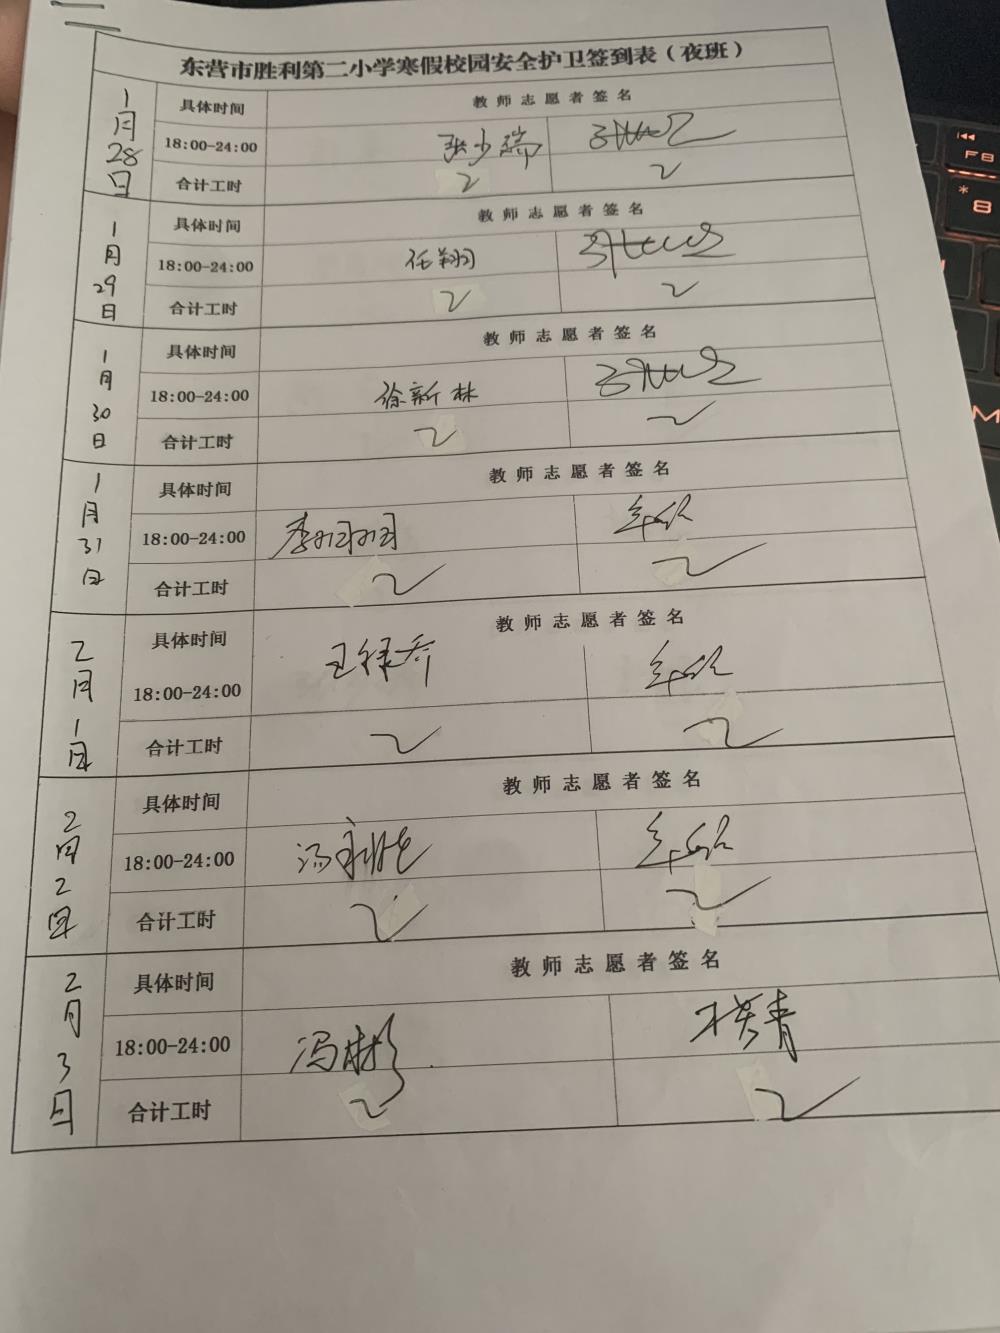 东营市胜利第二小学寒假校园安全护卫签到表（夜班）
1月28日
具体时间 教师志愿者签名
18:00-24:00 张少瑞
合计工时 2 2
1月29日
具体时间 教师志愿者签名
18:00-24:00 任翔
合计工时 2 2
1月30日
具体时间 教师志愿者签名
18:00-24:00 徐新林
合计工时 2 2
1月31日
具体时间 教师志愿者签名
18:00-24:00
合计工时 2 2
2月1日
具体时间 教师志愿者签名
18:00-24:00
合计工时 2 2
2月2日
具体时间 教师志愿者签名
18:00-24:00
合计工时 2 2
2月3日
具体时间 教师志愿者签名
18:00-24:00 冯彬
合计工时 2 2
F8
*
8
M